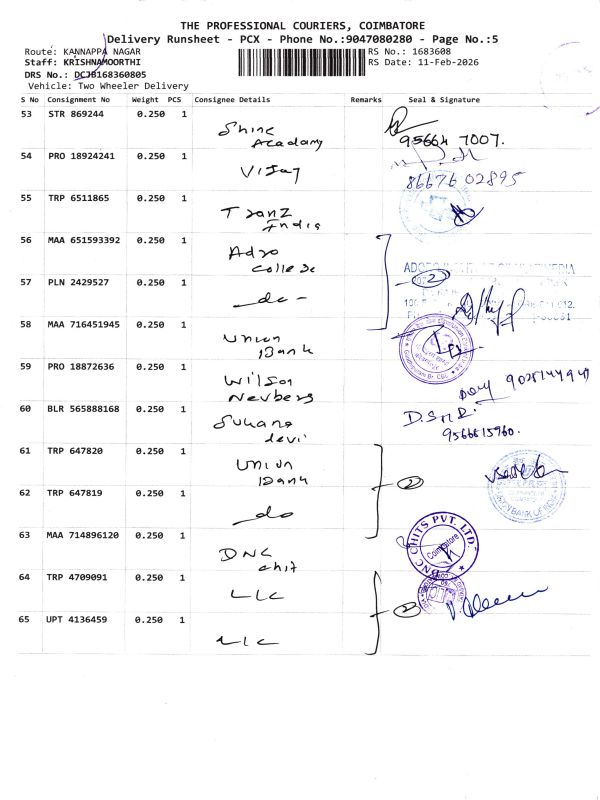 THE PROFESSIONAL COURIERS, COIMBATORE
Delivery Runsheet - PCX - Phone No.:9047080280 - Page No.:5
Route: KANNAPPA NAGAR
RS No.: 1683608
Staff: KRISHNAMOORTHI
RS Date: 11-Feb-2026
DRS No.: DCJB168360805
Vehicle: Two Wheeler Delivery
S No Consignment No Weight PCS Consignee Details Remarks Seal & Signature
53 STR 869244 0.250 1
Shine
Academy
95664 7007.
54 PRO 18924241 0.250 1
Vijay
86676 02895
55 TRP 6511865 0.250 1
Tranz
India
56 MAA 651593392 0.250 1
Adro
College
57 PLN 2429527 0.250 1
do -
2
58 MAA 716451945 0.250 1
Union
Bank
59 PRO 18872636 0.250 1
Wilson
Newbers
60 BLR 565888168 0.250 1
Suhana
devi
9566615960.
61 TRP 647820 0.250 1
Union
Bank
2
62 TRP 647819 0.250 1
do
63 MAA 714896120 0.250 1
DNC
chit
DNC CHITS PVT. LTD.
Coimbatore
64 TRP 4709091 0.250 1
LIC
2
65 UPT 4136459 0.250 1
LIC